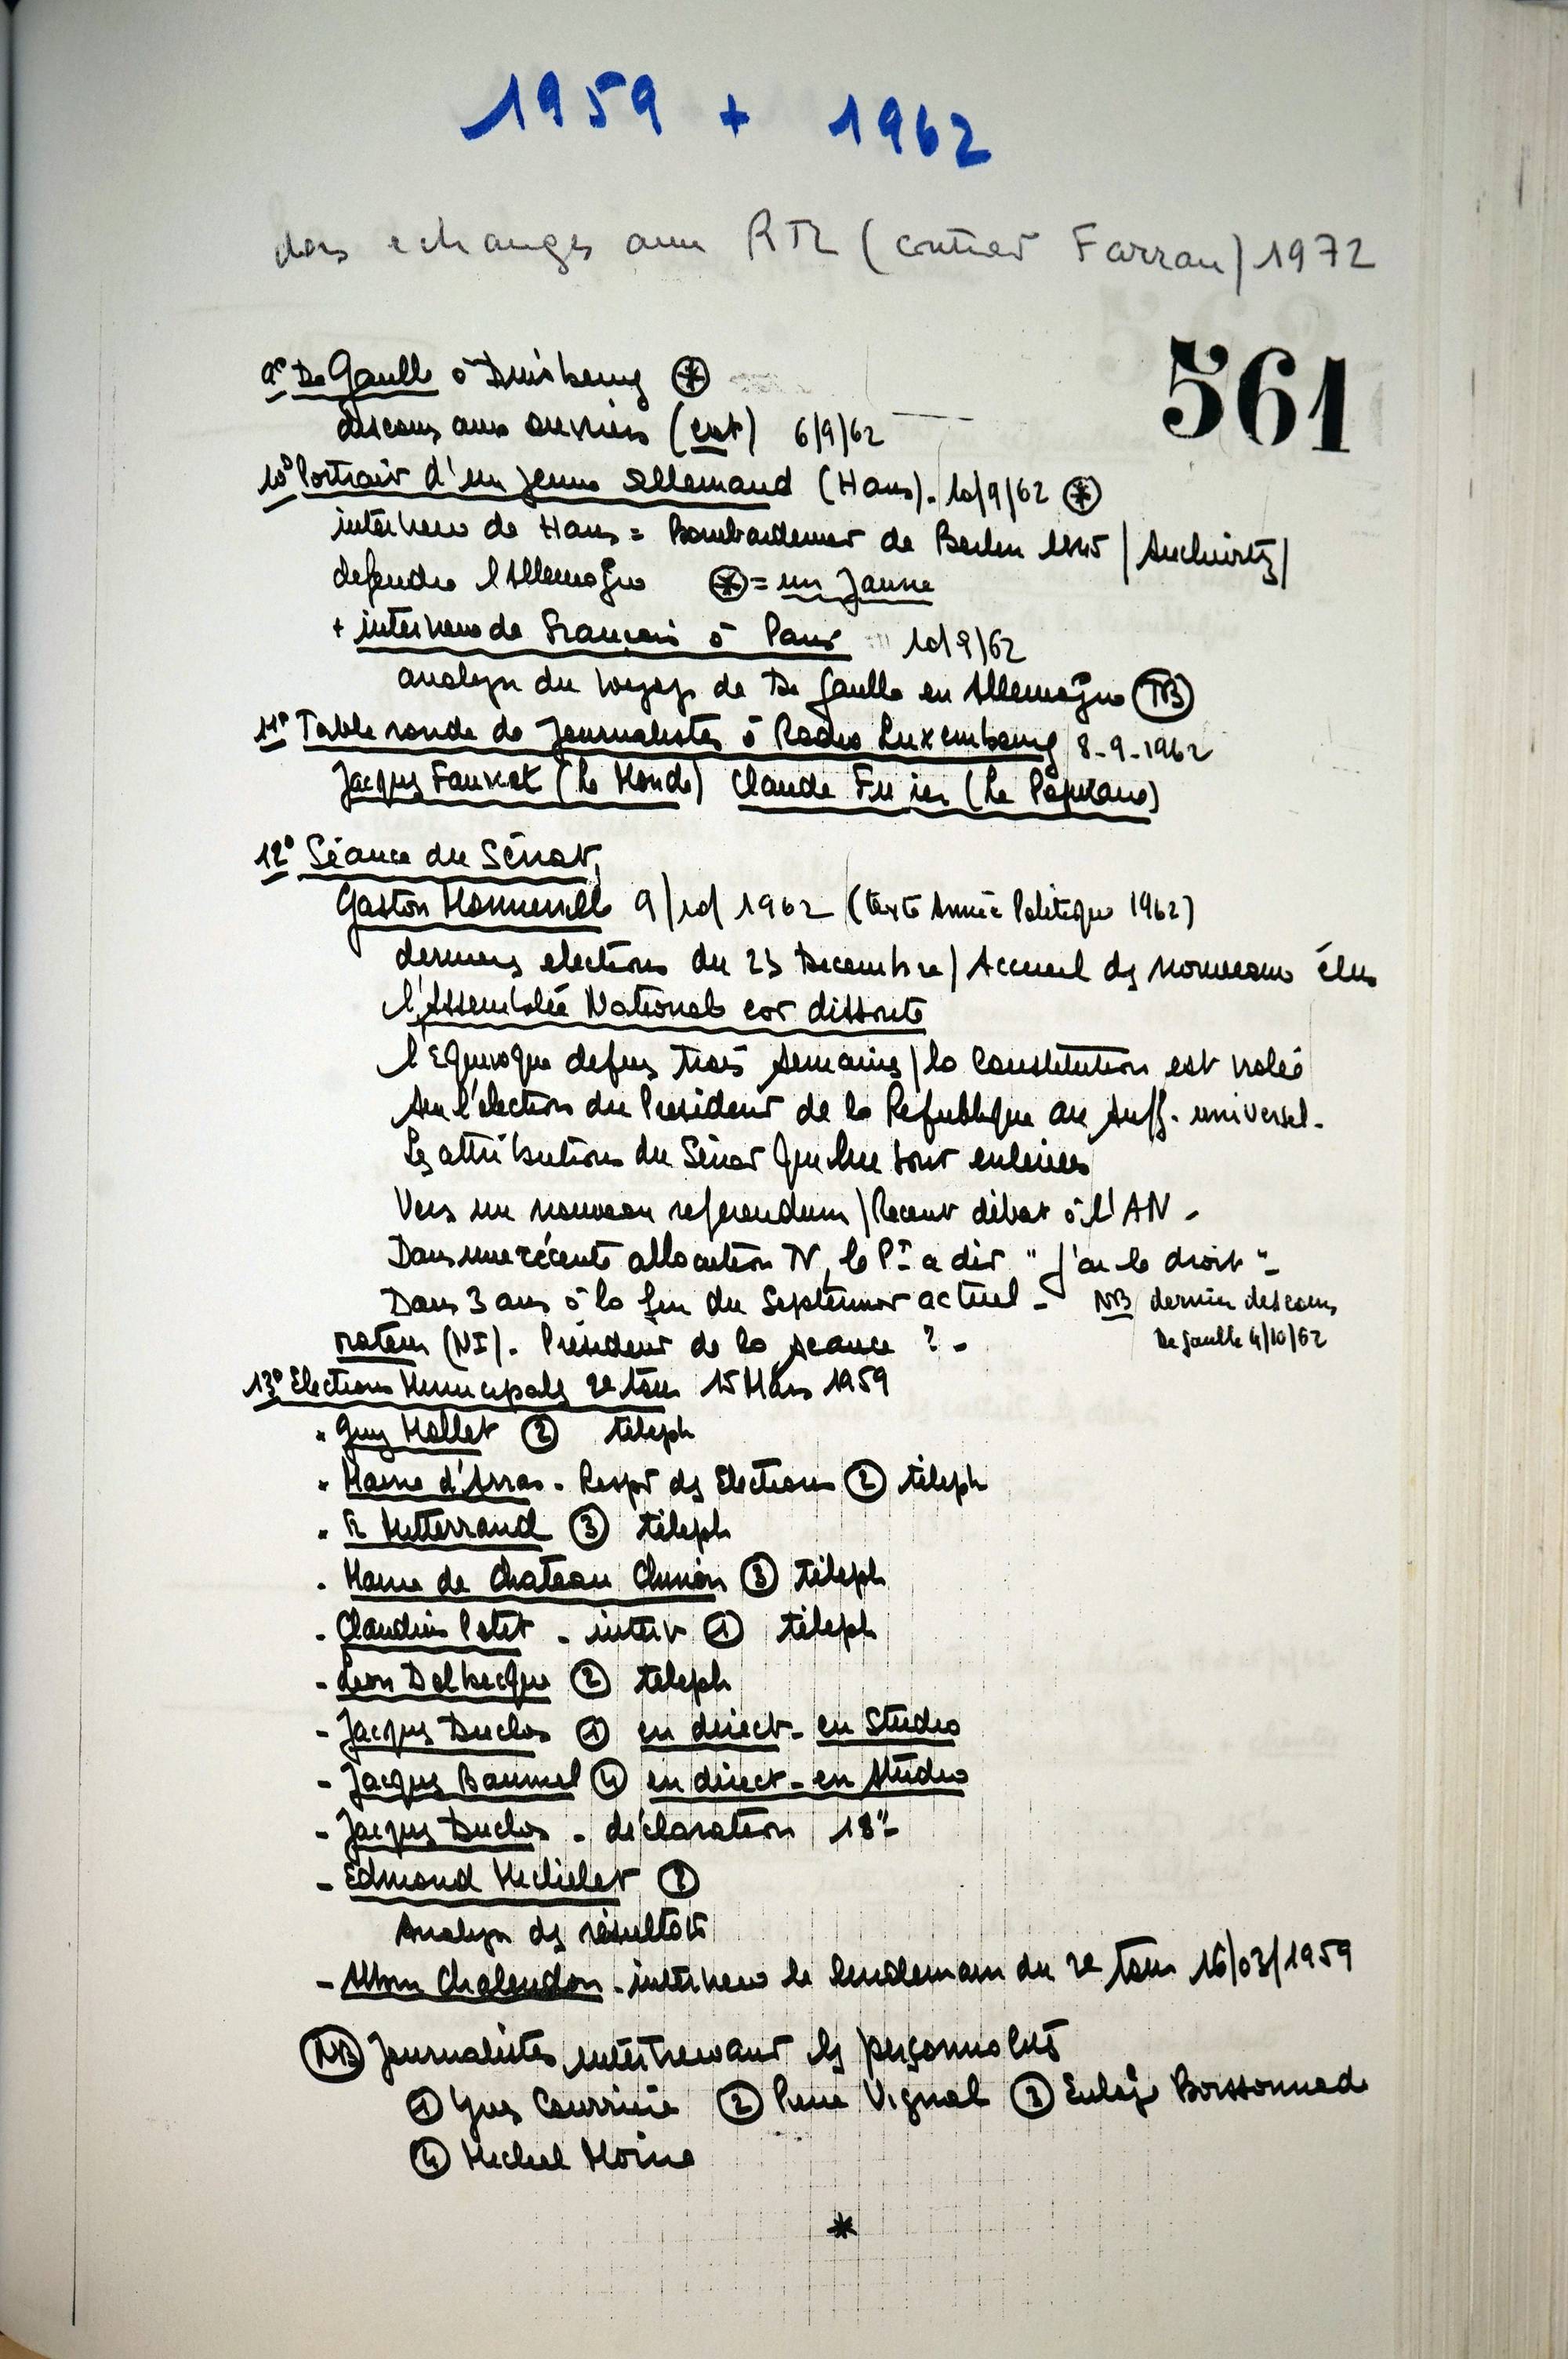 1959 + 1962
dos echanges avec RTL (courrier Farran) 1972
561
9° De Gaulle à Duisbourg *
discours aux ouvriers (ext) 6/9/62
10° Portrait d'un jeune allemand (Hans). 10/9/62 *
interview de Hans = Bombardement de Berlin 1945 / Auchwitz /
defendre l'Allemagne * = un jeune
+ interview de Français à Paris 10/9/62
analyse du voyage de De Gaulle en Allemagne TB
11° Table ronde de Journalistes à Radio Luxembourg 8-9-1962
Jacques Fauvet (Le Monde) Claude (Le Populaire)
12° Séance du Sénat,
Gaston Monnerville 9/10/1962 (texte Année Politique 1962)
derniers elections du 23 Decembre / Accueil des nouveaux élus
l'Assemblée Nationale est dissoute
l'Equivoque depuis trois semaines / la Constitution est violée
sur l'élection du President de la Republique au suff. universel.
Les attributions du Sénat qui lui sont enlevées
Vers un nouveau referendum / Recent débat à l'AN -
Dans une récente allocution TV, le Pt a dit "J'ai le droit" -
Dans 3 ans à la fin du Septennat actuel - NB dernier discours
De Gaulle 4/10/62
orateur (NI). President de la seance ? -
13° Elections Municipales 2e tour 15 Mars 1959
- Guy Mollet ② téleph
- Maire d'Arras - Respt des Elections ② téleph
- F. Mitterrand ③ téleph
- Maire de Chateau Chinon ③ téleph
- Claudius Petit - interv ① téleph
- Leon Delbecque ② téleph
- Jacques Duclos ① en direct - en Studio
- Jacques Baumel ④ en direct - en studio
- Jacques Duclos - déclaration 18" -
- Edmond Michelet
Analyse des résultats
- Albin Chalandon - interview le lendemain du 2e tour 16/03/1959
NB Journalistes interviewant les personnalités
① Yves Courrière ② Pierre Vignal ③ Eulage Boissonnade
④ Michel Moine
*